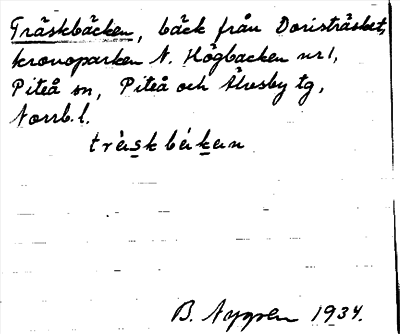 Träskbäcken, bäck från Doristräsket,
kronoparken N. Högbacken nr 1,
Piteå sn, Piteå och Älvsby tg,
Norrb. l.
träskbäkän
B. Nygren 1934.